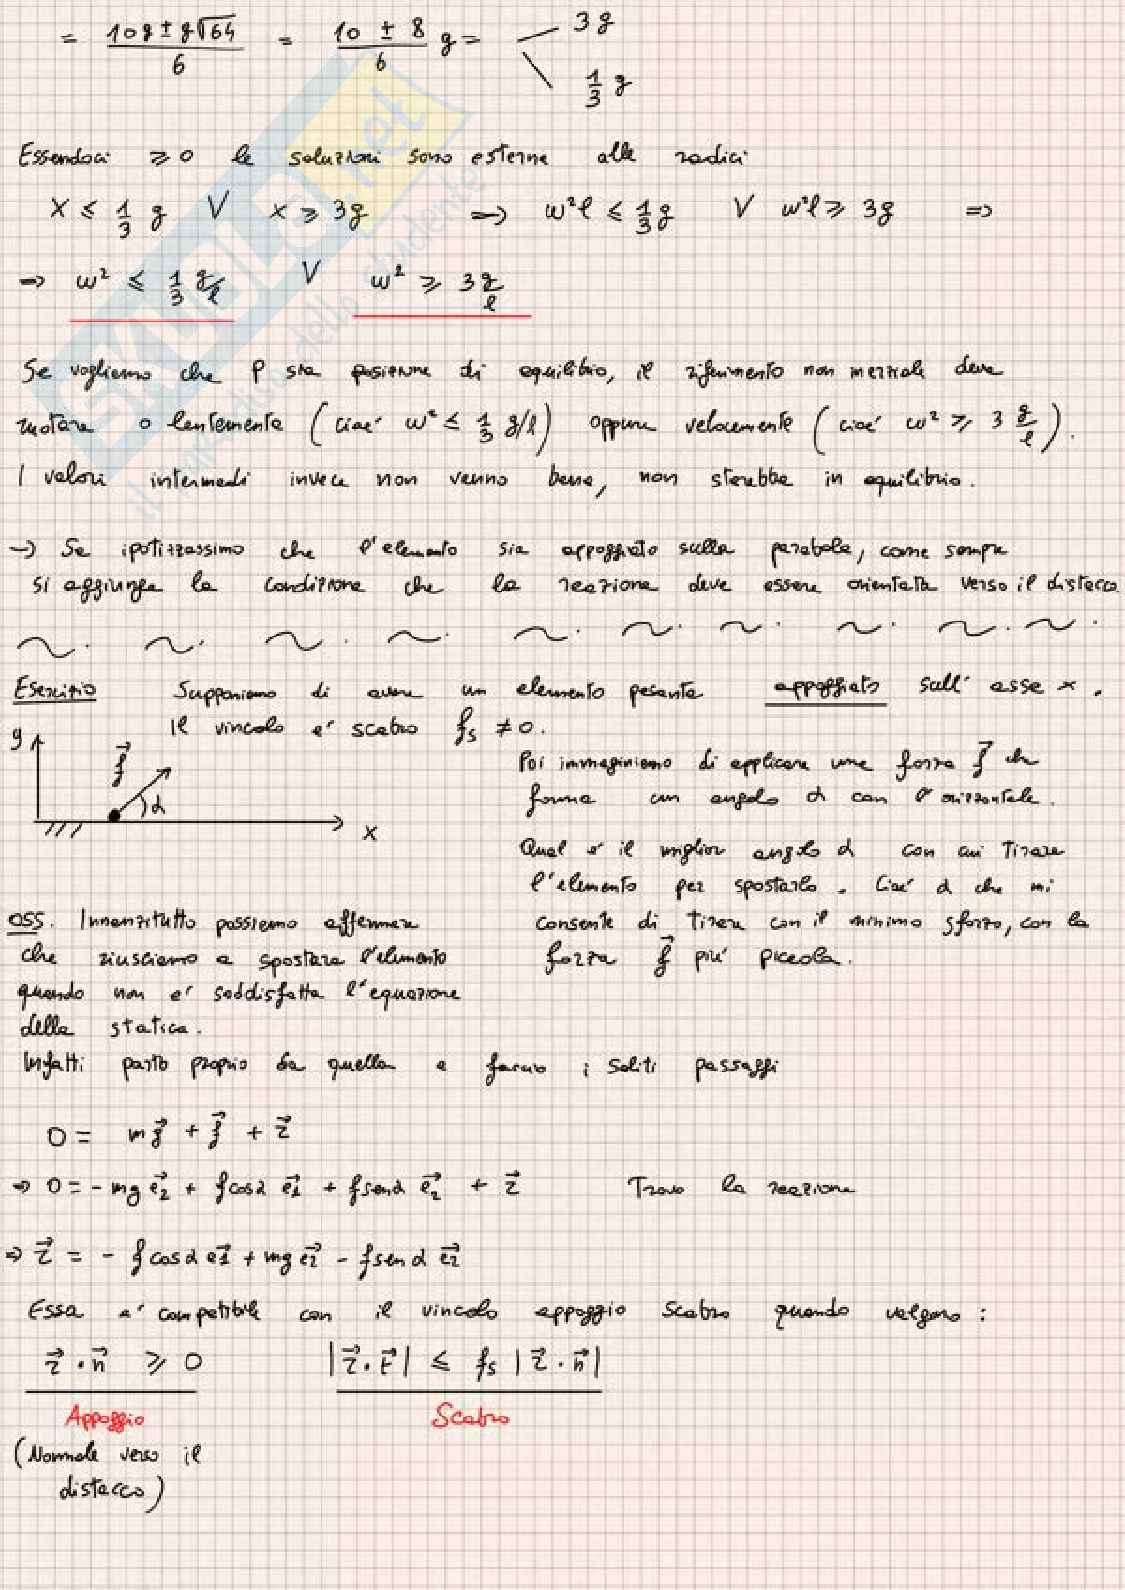 = (10g ± g√64)/6 = (10 ± 8)/6 g = 3g
1/3 g
Essendoci ≥ 0 le soluzioni sono esterne alle radici
x ≤ 1/3 g V x ≥ 3g → ω²l ≤ 1/3 g V ω²l ≥ 3g ⇒
⇒ ω² ≤ 1/3 g/l V ω² ≥ 3 g/l
Se vogliamo che P sia posizione di equilibrio, il riferimento non inerziale deve
ruotare o lentamente (cioè ω² ≤ 1/3 g/l) oppure velocemente (cioè ω² ≥ 3 g/l).
I valori intermedi invece non vanno bene, non starebbe in equilibrio.
→ Se ipotizzassimo che l'elemento sia appoggiato sulla parabola, come sempre
si aggiunge la condizione che la reazione deve essere orientata verso il distacco
Esercizio Supponiamo di avere un elemento pesante appoggiato sull'asse x.
Il vincolo e' scabro fs ≠ 0.
y
f⃗
α
x
Poi immaginiamo di applicare una forza f⃗ che
forma un angolo α con l'orizzontale.
Qual e' il miglior angolo α con cui tirare
l'elemento per spostarlo. Cioe' α che mi
consente di tirare con il minimo sforzo, con la
forza f⃗ piu' piccola.
OSS. Innanzitutto possiamo affermare
che riusciamo a spostare l'elemento
quando non e' soddisfatta l'equazione
della statica.
Infatti parto proprio da quella e faccio i soliti passaggi
0 = mg⃗ + f⃗ + r⃗
⇒ 0 = - mg e⃗2 + f cosα e⃗1 + f senα e⃗2 + r⃗ Trovo la reazione
⇒ r⃗ = - f cosα e⃗1 + mg e⃗2 - f senα e⃗2
Essa e' compatibile con il vincolo appoggio scabro quando valgono:
r⃗ · n⃗ ≥ 0 |r⃗ · t⃗| ≤ fs |r⃗ · n⃗|
Appoggio Scabro
(Normale verso il
distacco)
SKUOLA.net
il paradiso dello studente